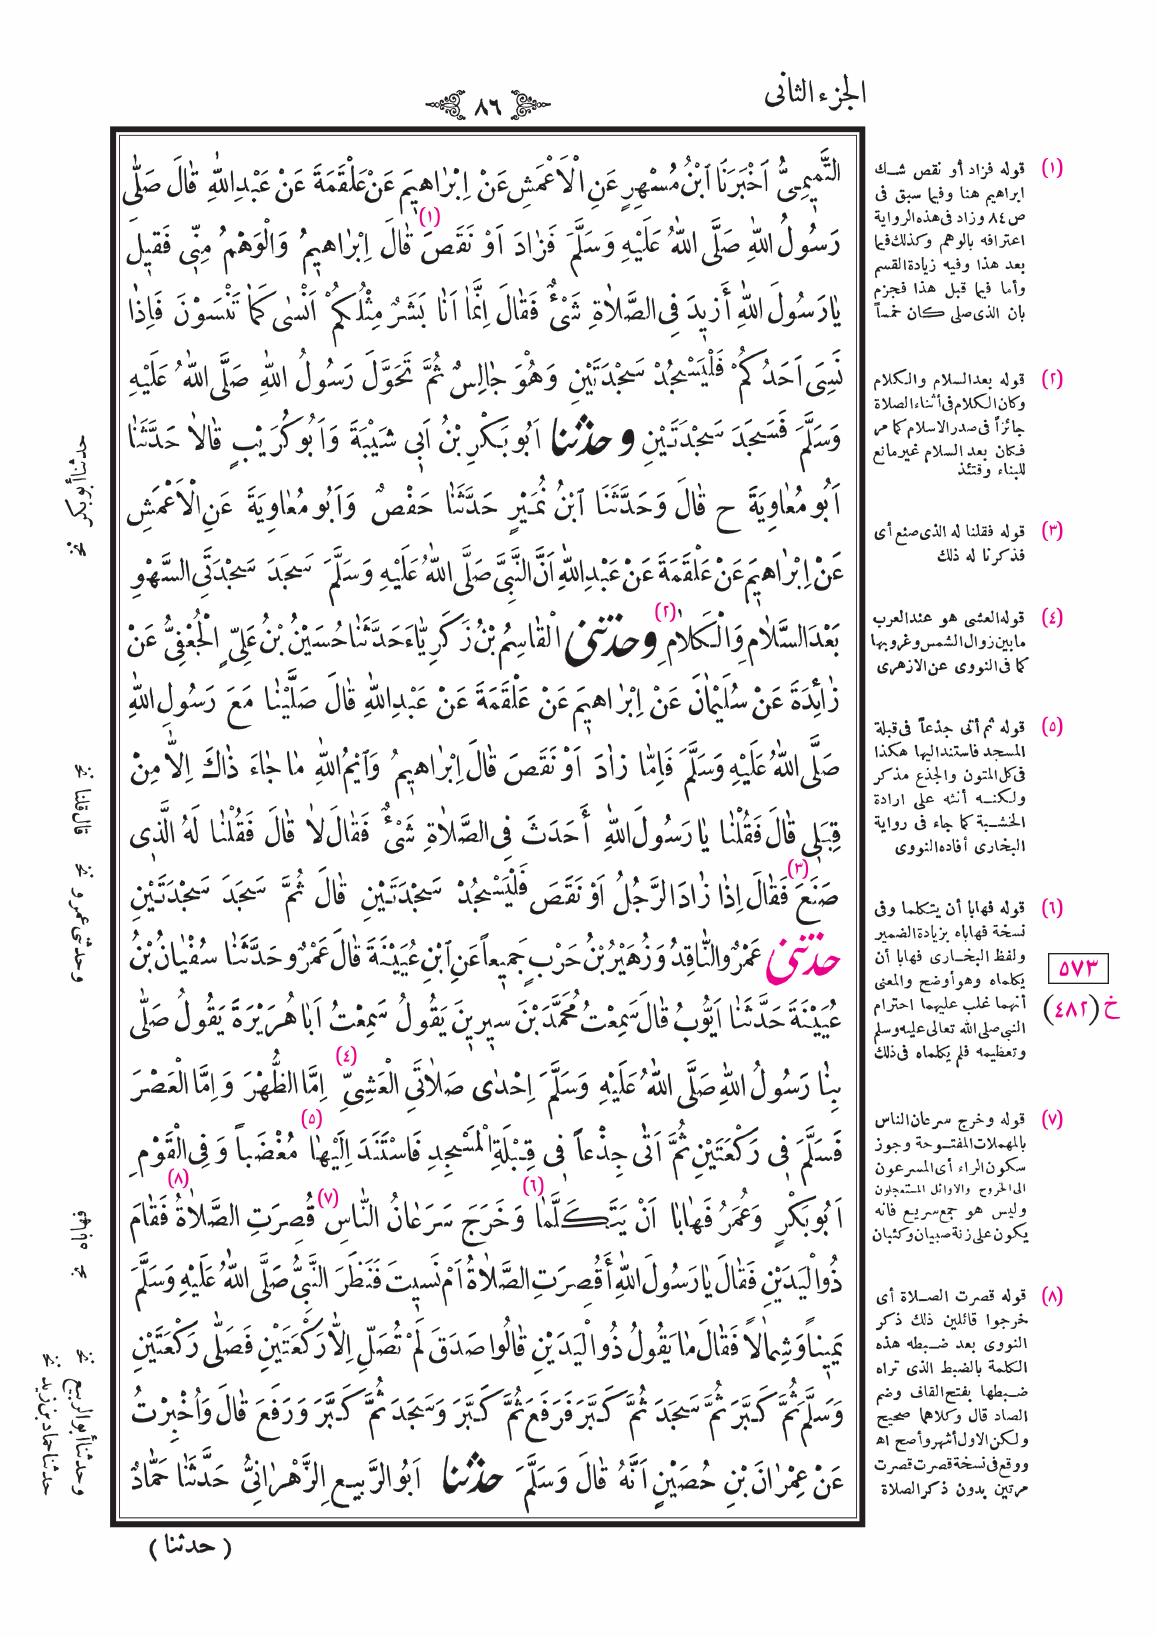 الجزء الثانى
٨٦
التَّمِيمِىُّ اَخْبَرَنَا ابْنُ مُسْهِرٍ عَنِ الْاَعْمَشِ عَنْ اِبْرَاهِيمَ عَنْ عَلْقَمَةَ عَنْ عَبْدِاللّٰهِ قَالَ صَلَّى
رَسُولُ اللّٰهِ صَلَّى اللّٰهُ عَلَيْهِ وَسَلَّمَ فَزَادَ اَوْ نَقَصَ (١) قَالَ اِبْرَاهِيمُ وَالْوَهْمُ مِنِّى فَقِيلَ
يَا رَسُولَ اللّٰهِ أَزِيدَ فِى الصَّلَاةِ شَىْءٌ فَقَالَ اِنَّمَا اَنَا بَشَرٌ مِثْلُكُمْ اَنْسَى كَمَا تَنْسَوْنَ فَاِذَا
نَسِىَ اَحَدُكُمْ فَلْيَسْجُدْ سَجْدَتَيْنِ وَهُوَ جَالِسٌ ثُمَّ تَحَوَّلَ رَسُولُ اللّٰهِ صَلَّى اللّٰهُ عَلَيْهِ
وَسَلَّمَ فَسَجَدَ سَجْدَتَيْنِ وحدثنا اَبُو بَكْرِ بْنُ اَبِى شَيْبَةَ وَاَبُو كُرَيْبٍ قَالَا حَدَّثَنَا
اَبُو مُعَاوِيَةَ ح قَالَ وَحَدَّثَنَا ابْنُ نُمَيْرٍ حَدَّثَنَا حَفْصٌ وَاَبُو مُعَاوِيَةَ عَنِ الْاَعْمَشِ
عَنْ اِبْرَاهِيمَ عَنْ عَلْقَمَةَ عَنْ عَبْدِاللّٰهِ اَنَّ النَّبِىَّ صَلَّى اللّٰهُ عَلَيْهِ وَسَلَّمَ سَجَدَ سَجْدَتَىِ السَّهْوِ
بَعْدَ السَّلَامِ وَالْكَلَامِ (٢) وحدثنى الْقَاسِمُ بْنُ زَكَرِيَّاءَ حَدَّثَنَا حُسَيْنُ بْنُ عَلِىٍّ الْجُعْفِىُّ عَنْ
زَائِدَةَ عَنْ سُلَيْمَانَ عَنْ اِبْرَاهِيمَ عَنْ عَلْقَمَةَ عَنْ عَبْدِاللّٰهِ قَالَ صَلَّيْنَا مَعَ رَسُولِ اللّٰهِ
صَلَّى اللّٰهُ عَلَيْهِ وَسَلَّمَ فَاِمَّا زَادَ اَوْ نَقَصَ قَالَ اِبْرَاهِيمُ وَايْمُ اللّٰهِ مَا جَاءَ ذَاكَ اِلَّا مِنْ
قِبَلِى قَالَ فَقُلْنَا يَا رَسُولَ اللّٰهِ أَحَدَثَ فِى الصَّلَاةِ شَىْءٌ فَقَالَ لَا قَالَ فَقُلْنَا لَهُ الَّذِى
صَنَعَ (٣) فَقَالَ اِذَا زَادَ الرَّجُلُ اَوْ نَقَصَ فَلْيَسْجُدْ سَجْدَتَيْنِ قَالَ ثُمَّ سَجَدَ سَجْدَتَيْنِ
حدثنى عَمْرٌو النَّاقِدُ وَزُهَيْرُ بْنُ حَرْبٍ جَمِيعاً عَنِ ابْنِ عُيَيْنَةَ قَالَ عَمْرٌو حَدَّثَنَا سُفْيَانُ بْنُ
عُيَيْنَةَ حَدَّثَنَا اَيُّوبُ قَالَ سَمِعْتُ مُحَمَّدَ بْنَ سِيرِينَ يَقُولُ سَمِعْتُ اَبَا هُرَيْرَةَ يَقُولُ صَلَّى
بِنَا رَسُولُ اللّٰهِ صَلَّى اللّٰهُ عَلَيْهِ وَسَلَّمَ اِحْدَى صَلَاتَىِ الْعَشِىِّ (٤) اِمَّا الظُّهْرَ وَاِمَّا الْعَصْرَ
فَسَلَّمَ فِى رَكْعَتَيْنِ ثُمَّ اَتَى جِذْعاً فِى قِبْلَةِ الْمَسْجِدِ فَاسْتَنَدَ اِلَيْهَا (٥) مُغْضَباً وَفِى الْقَوْمِ
اَبُو بَكْرٍ وَعُمَرُ فَهَابَا اَنْ يَتَكَلَّمَا (٦) وَخَرَجَ سَرَعَانُ النَّاسِ (٧) قُصِرَتِ الصَّلَاةُ (٨) فَقَامَ
ذُو الْيَدَيْنِ فَقَالَ يَا رَسُولَ اللّٰهِ أَقُصِرَتِ الصَّلَاةُ اَمْ نَسِيتَ فَنَظَرَ النَّبِىُّ صَلَّى اللّٰهُ عَلَيْهِ وَسَلَّمَ
يَمِيناً وَشِمَالاً فَقَالَ مَا يَقُولُ ذُو الْيَدَيْنِ قَالُوا صَدَقَ لَمْ تُصَلِّ اِلَّا رَكْعَتَيْنِ فَصَلَّى رَكْعَتَيْنِ
وَسَلَّمَ ثُمَّ كَبَّرَ ثُمَّ سَجَدَ ثُمَّ كَبَّرَ فَرَفَعَ ثُمَّ كَبَّرَ وَسَجَدَ ثُمَّ كَبَّرَ وَرَفَعَ قَالَ وَاُخْبِرْتُ
عَنْ عِمْرَانَ بْنِ حُصَيْنٍ اَنَّهُ قَالَ وَسَلَّمَ حدثنا اَبُو الرَّبِيعِ الزَّهْرَانِىُّ حَدَّثَنَا حَمَّادٌ
( حدثنا )
(١) قوله فزاد أو نقص شك
ابراهيم هنا وفيما سبق فى
ص ٨٤ وزاد فى هذه الرواية
اعترافه بالوهم وكذلك فيما
بعد هذا وفيه زيادة القسم
وأما فيما قبل هذا فجزم
بان الذى صلى كان خمساً
(٢) قوله بعد السلام والكلام
وكان الكلام فى أثناء الصلاة
جائزاً فى صدر الاسلام كما مر
فكان بعد السلام غير مانع
للبناء وقتئذ
(٣) قوله فقلنا له الذى صنع أى
فذكرنا له ذلك
(٤) قوله العشى هو عند العرب
ما بين زوال الشمس وغروبها
كما فى النووى عن الازهرى
(٥) قوله ثم أتى جذعاً فى قبلة
المسجد فاستند اليها هكذا
فى كل المتون والجذع مذكر
ولكنه أنثه على ارادة
الخشبة كما جاء فى رواية
البخارى أفاده النووى
(٦) قوله فهابا أن يتكلما وفى
نسخة فهاباه بزيادة الضمير
ولفظ البخارى فهابا أن
يكلماه وهو أوضح والمعنى
أنهما غلب عليهما احترام
النبى صلى الله تعالى عليه وسلم
وتعظيمه فلم يكلماه فى ذلك
٥٧٣
خ (٤٨٢)
(٧) قوله وخرج سرعان الناس
بالمهملات المفتوحة وجوز
سكون الراء أى المسرعون
الى الخروج والاوائل المستعجلون
وليس هو جمع سريع فانه
يكون على زنة صبيان وكثبان
(٨) قوله قصرت الصلاة أى
خرجوا قائلين ذلك ذكر
النووى بعد ضبطه هذه
الكلمة بالضبط الذى تراه
ضبطها بفتح القاف وضم
الصاد قال وكلاهما صحيح
ولكن الاول أشهر وأصح اه
ووقع فى نسخة قصرت قصرت
مرتين بدون ذكر الصلاة
حدثنا أبوبكر نخ
قال قلنا نخ
وحدثنى عمرو نخ
فهاباه نخ
وحدثنا أبو الربيع نخ
حدثنا حماد بن زيد نخ